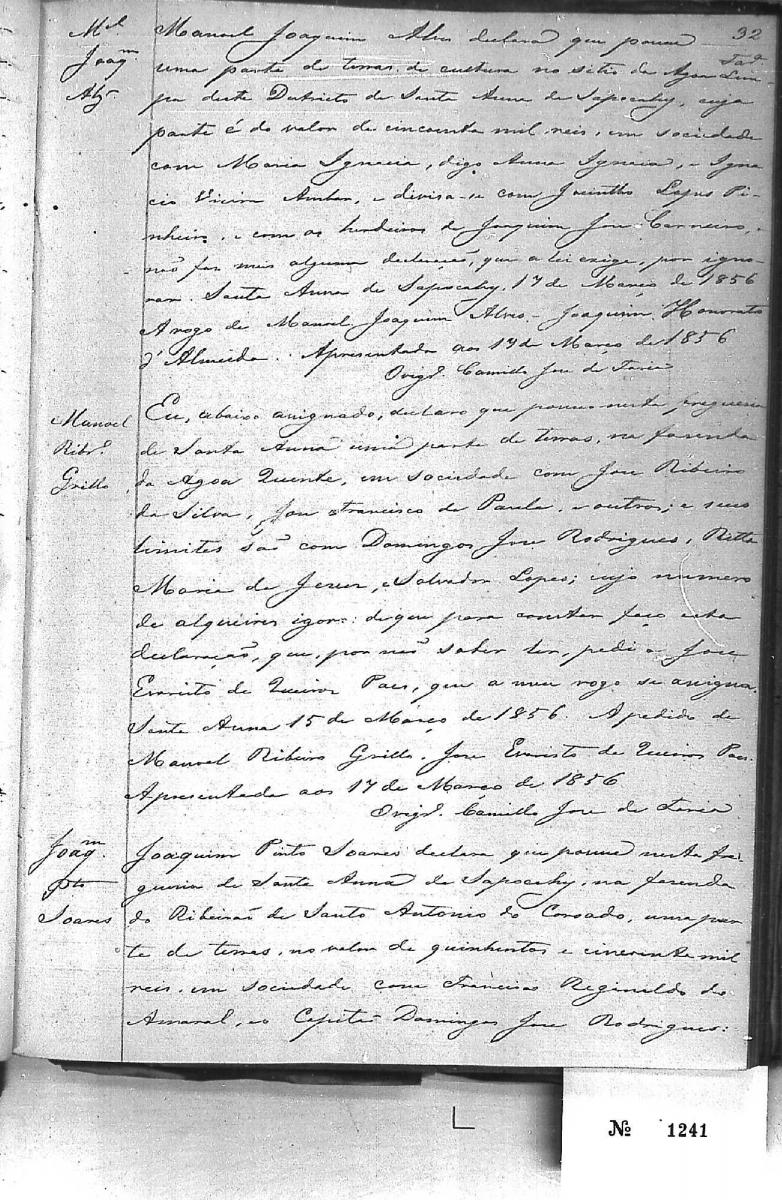 32
Tad.
M.el
Joaq.m
Alz.
Manoel Joaquim Alves declara que possue
uma parte de terras de cultura no sitio da Agoa Lim-
pa deste Districto de Santa Anna de Sapocahy, cuja
parte é do valor de cincoenta mil reis, em sociedade
com Maria Ignacia, digo Anna Ignacia, e Igna
cio Vieira, e divisa-se com Jacintho Lopes Pi-
nheiro, e com os herdeiros de Joaquim Jose Carneiro, e
não faz mais alguma declaração, que a lei exige, por igno-
rar. Santa Anna de Sapocahy, 17 de Março de 1856
A rogo de Manoel Joaquim Alves - Joaquim Honorato
d'Almeida. Apresentada aos 17 de Março de 1856
Orig.l Camillo Jose de Faria
Manoel
Ribr.o
Grillo
Eu, abaixo assignado, declaro que possuo nesta freguesia
de Santa Anna uma parte de terras, na fazenda
da Agoa Quente, em sociedade com Jose Ribeiro
da Silva, Jose Francisco de Paula, e outros; e seus
limites saõ com Domingos Jose Rodrigues, Ritta
Maria de Jesus, e Salvador Lopes; cujo numero
de alqueires ignoro: de que para constar faço esta
declaração, que, por não saber ler, pedi a Jose
Evaristo de Queiros Paes, que a meu rogo se assigna.
Santa Anna 15 de Março de 1856. A pedido de
Manoel Ribeiro Grillo. Jose Evaristo de Queiros Paes.
Apresentada aos 17 de Março de 1856
Orig.l Camillo Jose de Faria
Joaq.m
Pto
Soares
Joaquim Pinto Soares declara que possue nesta Fre-
guesia de Santa Anna de Sapocahy, na fazenda
do Ribeirão de Santo Antonio do Coroado, uma par
te de terras, no valor de quinhentos e cincoenta mil
reis, em sociedade com Francisco Reginaldo do
Amaral, e o Capitão Domingos Jose Rodrigues:
Nº 1241